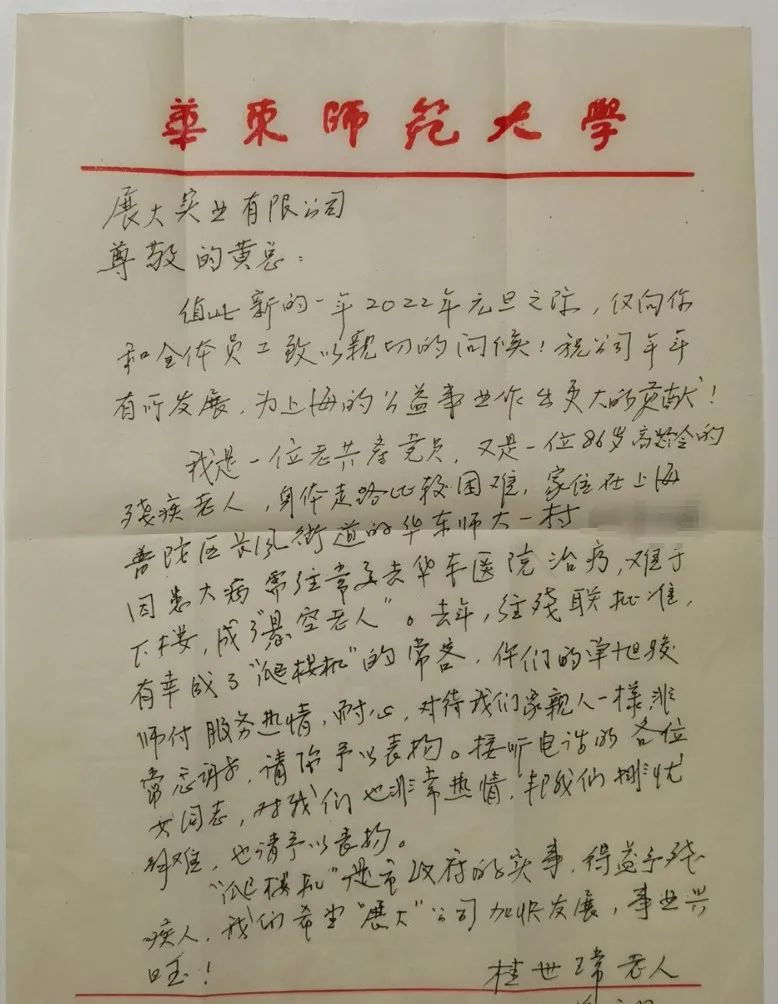 華東師范大学
展大实业有限公司
尊敬的黄总：
值此新的一年2022年元旦之际，仅向你
和全体员工致以親切的问候！祝公司年年
有所发展，为上海的公益事业作出更大的贡献！
我是一位老共产党员，又是一位86岁高龄的
残疾老人，身体走路比较困难，家住在上海
普陀区长风街道的华东师大一村
因患大病需经常去华东医院治疗，难于
下楼，成了“悬空老人”。去年，经残联批准，
有幸成了“爬楼机”的常客，你们的单旭骏
师付服务热情，耐心，对待我们象親人一様非
常感谢，请给予以表扬。接听电话的各位
女同志，对我们也非常热情，帮我们排忧
解难，也请予以表扬。
“爬楼机”是市政府的实事，得益于残
疾人，我们希望“展大”公司加快发展，事业兴
旺！
桂世璋老人